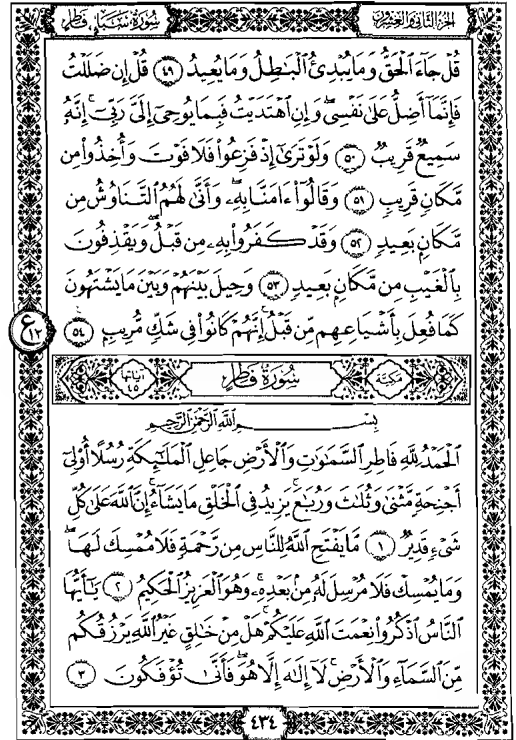 الجزء الثاني والعشرون
سورة سبأ، فاطر
قُلْ جَآءَ ٱلْحَقُّ وَمَا يُبْدِئُ ٱلْبَٰطِلُ وَمَا يُعِيدُ ٤٩ قُلْ إِن ضَلَلْتُ
فَإِنَّمَآ أَضِلُّ عَلَىٰ نَفْسِى ۖ وَإِنِ ٱهْتَدَيْتُ فَبِمَا يُوحِىٓ إِلَىَّ رَبِّىٓ ۚ إِنَّهُۥ
سَمِيعٌ قَرِيبٌ ٥٠ وَلَوْ تَرَىٰٓ إِذْ فَزِعُوا۟ فَلَا فَوْتَ وَأُخِذُوا۟ مِن
مَّكَانٍ قَرِيبٍ ٥١ وَقَالُوٓا۟ ءَامَنَّا بِهِۦ وَأَنَّىٰ لَهُمُ ٱلتَّنَاوُشُ مِن
مَّكَانٍۭ بَعِيدٍ ٥٢ وَقَدْ كَفَرُوا۟ بِهِۦ مِن قَبْلُ ۖ وَيَقْذِفُونَ
بِٱلْغَيْبِ مِن مَّكَانٍۭ بَعِيدٍ ٥٣ وَحِيلَ بَيْنَهُمْ وَبَيْنَ مَا يَشْتَهُونَ
كَمَا فُعِلَ بِأَشْيَاعِهِم مِّن قَبْلُ ۚ إِنَّهُمْ كَانُوا۟ فِى شَكٍّ مُّرِيبٍۭ ٥٤
ع ١٢
مكية
سُورَةُ فَاطِرٍ
آياتها ٤٥
بِسْمِ ٱللَّهِ ٱلرَّحْمَٰنِ ٱلرَّحِيمِ
ٱلْحَمْدُ لِلَّهِ فَاطِرِ ٱلسَّمَٰوَٰتِ وَٱلْأَرْضِ جَاعِلِ ٱلْمَلَٰٓئِكَةِ رُسُلًا أُو۟لِىٓ
أَجْنِحَةٍ مَّثْنَىٰ وَثُلَٰثَ وَرُبَٰعَ ۚ يَزِيدُ فِى ٱلْخَلْقِ مَا يَشَآءُ ۚ إِنَّ ٱللَّهَ عَلَىٰ كُلِّ
شَىْءٍ قَدِيرٌ ١ مَّا يَفْتَحِ ٱللَّهُ لِلنَّاسِ مِن رَّحْمَةٍ فَلَا مُمْسِكَ لَهَا ۖ
وَمَا يُمْسِكْ فَلَا مُرْسِلَ لَهُۥ مِنۢ بَعْدِهِۦ ۚ وَهُوَ ٱلْعَزِيزُ ٱلْحَكِيمُ ٢ يَٰٓأَيُّهَا
ٱلنَّاسُ ٱذْكُرُوا۟ نِعْمَتَ ٱللَّهِ عَلَيْكُمْ ۚ هَلْ مِنْ خَٰلِقٍ غَيْرُ ٱللَّهِ يَرْزُقُكُم
مِّنَ ٱلسَّمَآءِ وَٱلْأَرْضِ ۚ لَآ إِلَٰهَ إِلَّا هُوَ ۖ فَأَنَّىٰ تُؤْفَكُونَ ٣
٤٣٤